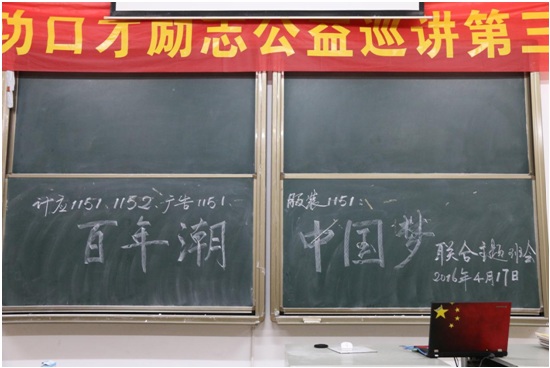 功口才励志公益巡讲第三
计应1151、1152、广告1151、
服装1151:
百年潮
中国梦
联合主题班会
2016年4月17日